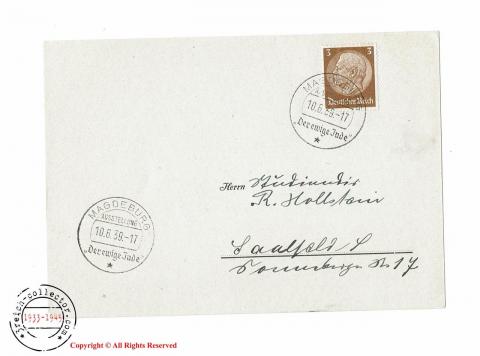 3 3
Deutsches Reich
MAGDEBURG
AUSSTELLUNG
10.6.39.-17
„Der ewige Jude"
Herrn Studiendir
R. Hollstein
MAGDEBURG
AUSSTELLUNG
10.6.39.-17
„Der ewige Jude"
Saalfeld S.
Sonneberger Str 17
3reich-collector.com
1933-1945
Copyright © All Rights Reserved